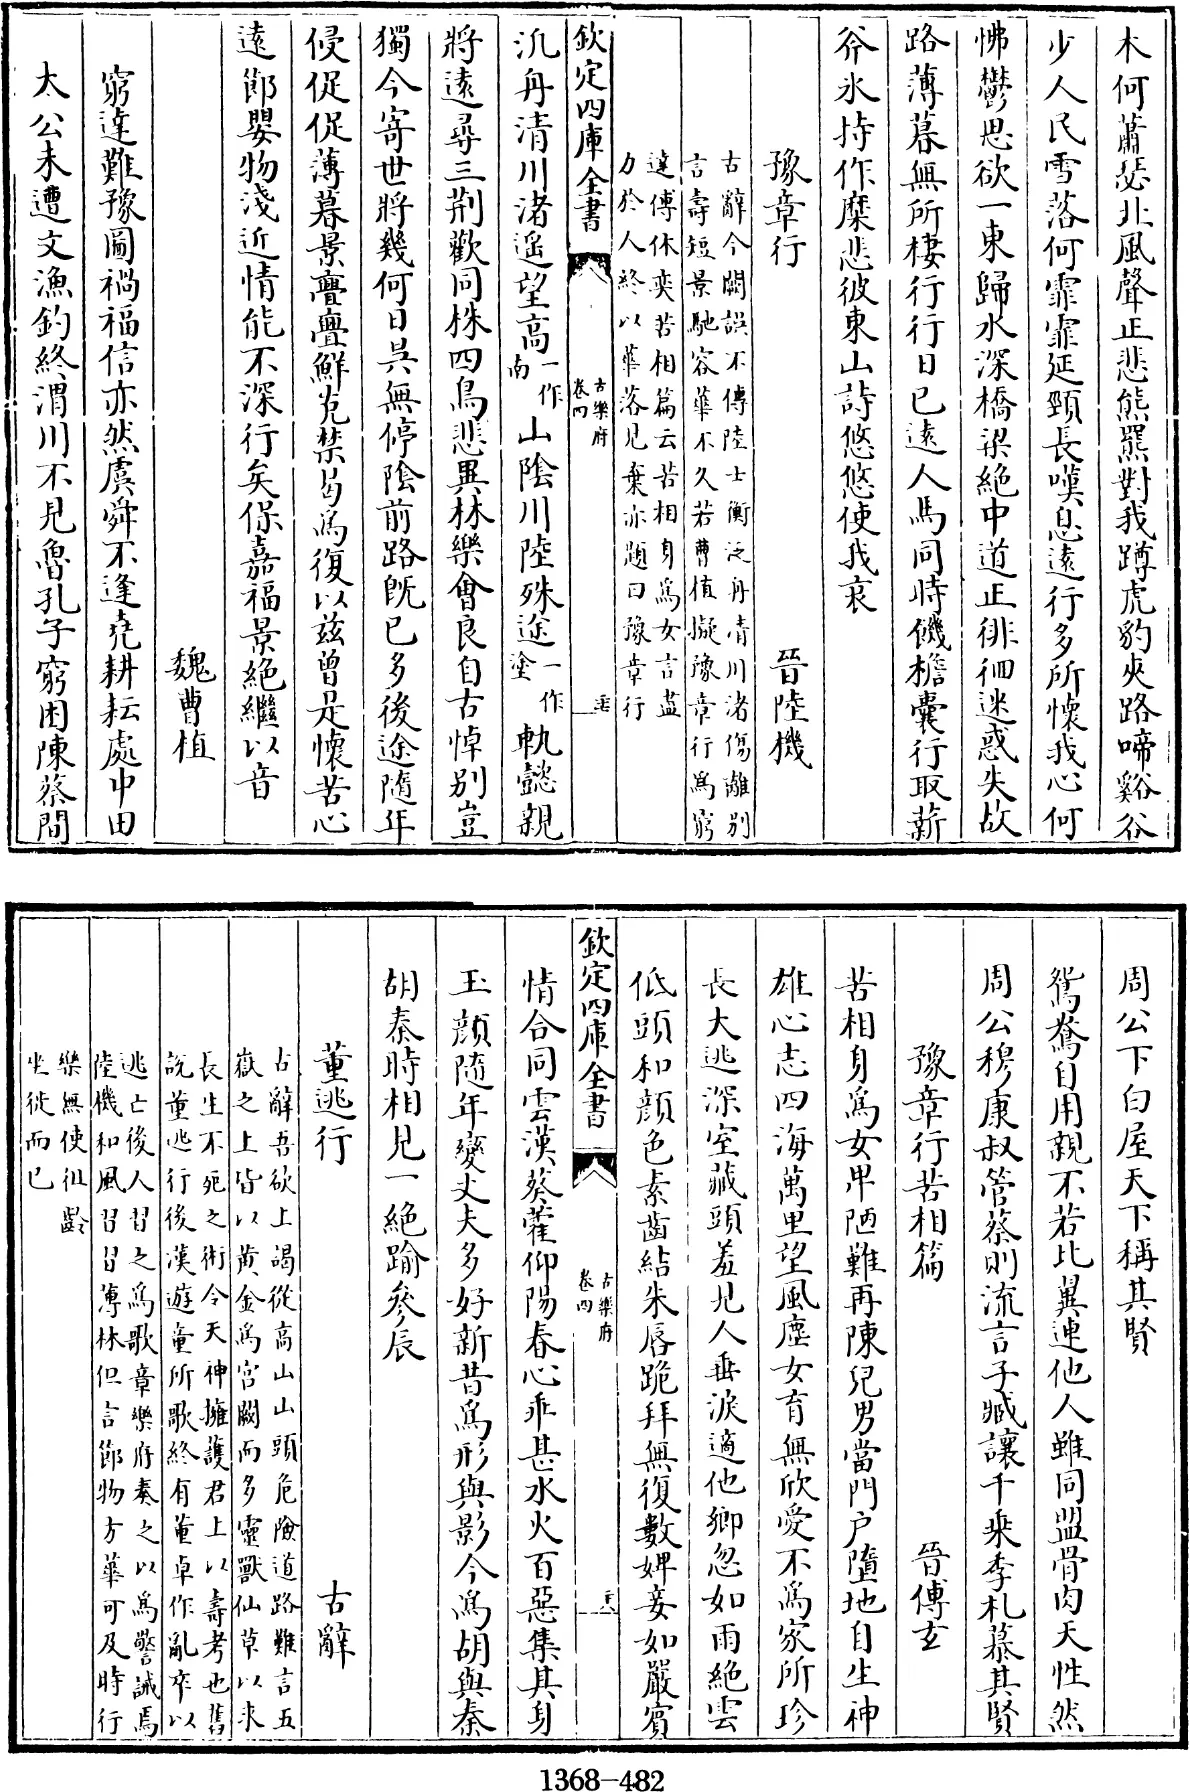 木何蕭瑟北風聲正悲熊羆對我蹲虎豹夾路啼谿谷
少人民雪落何霏霏延頸長嘆息遠行多所懷我心何
怫鬱思欲一東歸水深橋梁絶中道正徘徊迷惑失故
路薄暮無所棲行行日已遠人馬同時饑檐囊行取薪
斧氷持作糜悲彼東山詩悠悠使我哀
豫章行　晉陸機
古辭今闕誤不傳陸士衡泛舟清川渚傷離别
言壽短景馳容華不久若曹植擬豫章行爲窮
達傅休奕若相篇云苦相身爲女言盡
力於人終以華落見棄亦題曰豫章行
欽定四庫全書
古樂府
卷四
汎舟清川渚遥望高一作南山陰川陸殊途一作塗軌懿親
將遠尋三荆歡同株四鳥悲異林樂會良自古悼别豈
獨今寄世將幾何日昃無停陰前路既已多後途隨年
侵促促薄暮景亹亹鮮克禁曷爲復以兹曾是懷苦心
逺節嬰物淺近情能不深行矣保嘉福景絶繼以音
魏曹植
窮達難豫圖禍福信亦然虞舜不逢堯耕耘處中田
太公未遭文漁釣終渭川不見魯孔子窮困陳蔡間
周公下白屋天下稱其賢
鴛鴦自用親不若比翼連他人雖同盟骨肉天性然
周公穆康叔管蔡則流言子臧讓千乘季札慕其賢
豫章行苦相篇　晉傅玄
苦相身爲女卑陋難再陳兒男當門户墮地自生神
雄心志四海萬里望風塵女育無欣愛不爲家所珍
長大逃深室藏頭羞見人垂淚適他鄉忽如雨絶雲
低頭和顔色素齒結朱唇跪拜無復數婢妾如嚴賓
欽定四庫全書
古樂府
卷四
情合同雲漢葵藿仰陽春心乖甚水火百惡集其身
玉顔隨年變丈夫多好新昔爲形與影今爲胡與秦
胡秦時相見一絶踰參辰
董逃行　古辭
古辭吾欲上謁從高山山頭危險道路難言五
嶽之上皆以黄金爲宫闕而多靈獸仙草以求
長生不死之術令天神擁護君上以壽考也舊
説董逃行後漢遊童所歌終有董卓作亂卒以
逃亡後人習之爲歌章樂府奏之以爲警誡焉
陸機和風習習薄林但言節物方華可及時行
樂無使徂齡
坐徙而已
1368-482